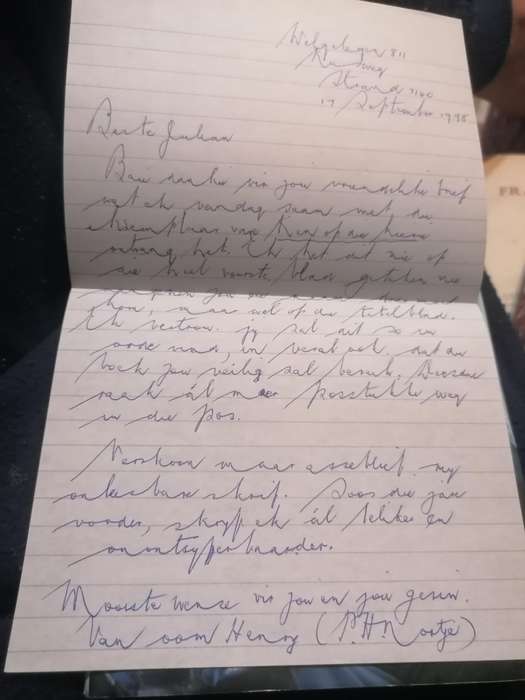 Welgelegen 811
Strand 7140
17 September 1998
Beste Julian
Baie dankie vir jou vriendelike brief
wat ek vandag saam met die
eksemplaar van
ontvang het. Ek het dit nie op
die heel voorste blad geteken nie
maar wel op die titelblad.
Ek vertrou jy sal dit so in
orde vind, en veral ook dat die
boek jou veilig sal bereik. Deesdae
raak ál meer posstukke weg
in die pos.
Verskoon maar asseblief my
onleesbare skrif. Soos die jare
vorder, skryf ek ál leliker en
onontsyferbaarder.
Mooiste wense vir jou en jou gesin.
Van oom Henry (P.H. Nortje)
FR